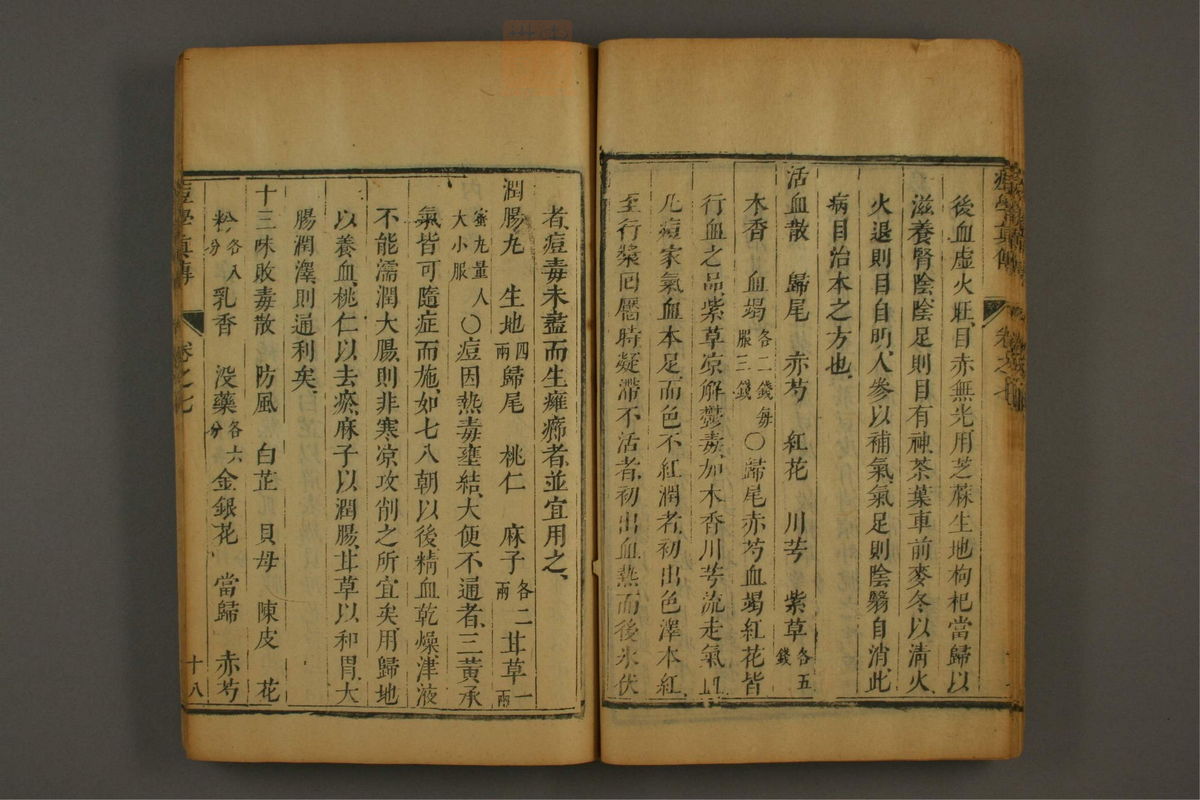 後血虛火旺目赤無光用芝蔴生地枸杞當歸以
滋養腎陰陰足則目有神茶葉車前麥冬以淸火
火退則目自明人參以補氣氣足則陰翳自消此
病目治本之方也
活血散 歸尾 赤芍 紅花 川芎 紫草各五錢
木香 血竭各二錢每服三錢〇歸尾赤芍血竭紅花皆
行血之品紫草凉解欝毒加木香川芎流走氣血
凡痘家氣血本足而色不紅潤者初出色澤本紅
至行漿回靨時凝滯不活者初出血熱而後氷伏
者痘毒未盡而生癰癤者並宜用之
潤腸丸 生地四兩歸尾 桃仁 麻子各二兩甘草一兩
蜜丸量人大小服〇痘因熱毒壅結大便不通者三黃承
氣皆可隨症而施如七八朝以後精血乾燥津液
不能濡潤大腸則非寒凉攻削之所宜矣用歸地
以養血桃仁以去瘀麻子以潤腸甘草以和胃大
腸潤澤則通利矣
十三味敗毒散防風 白芷 貝母 陳皮 花
粉各八分乳香 没藥各六分金銀花 當歸 赤芍
痘學眞傳 卷之七 十八